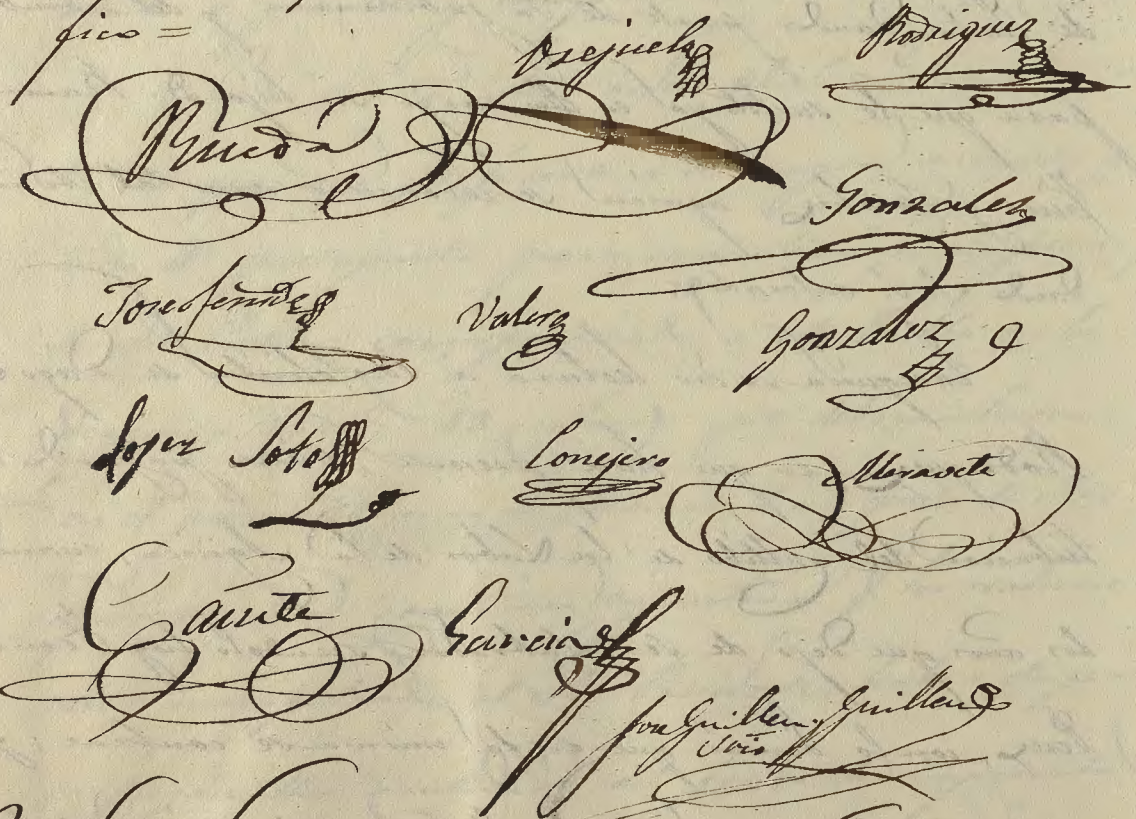 fico =
Orejuela
Rodriguez
Rueda
Gonzalez
Jose fernde
Valera
Gonzalez
Lopez Soto
Conejero
Meravete
Cañete
Garcia
Jou Guillen y Guillen
Srio